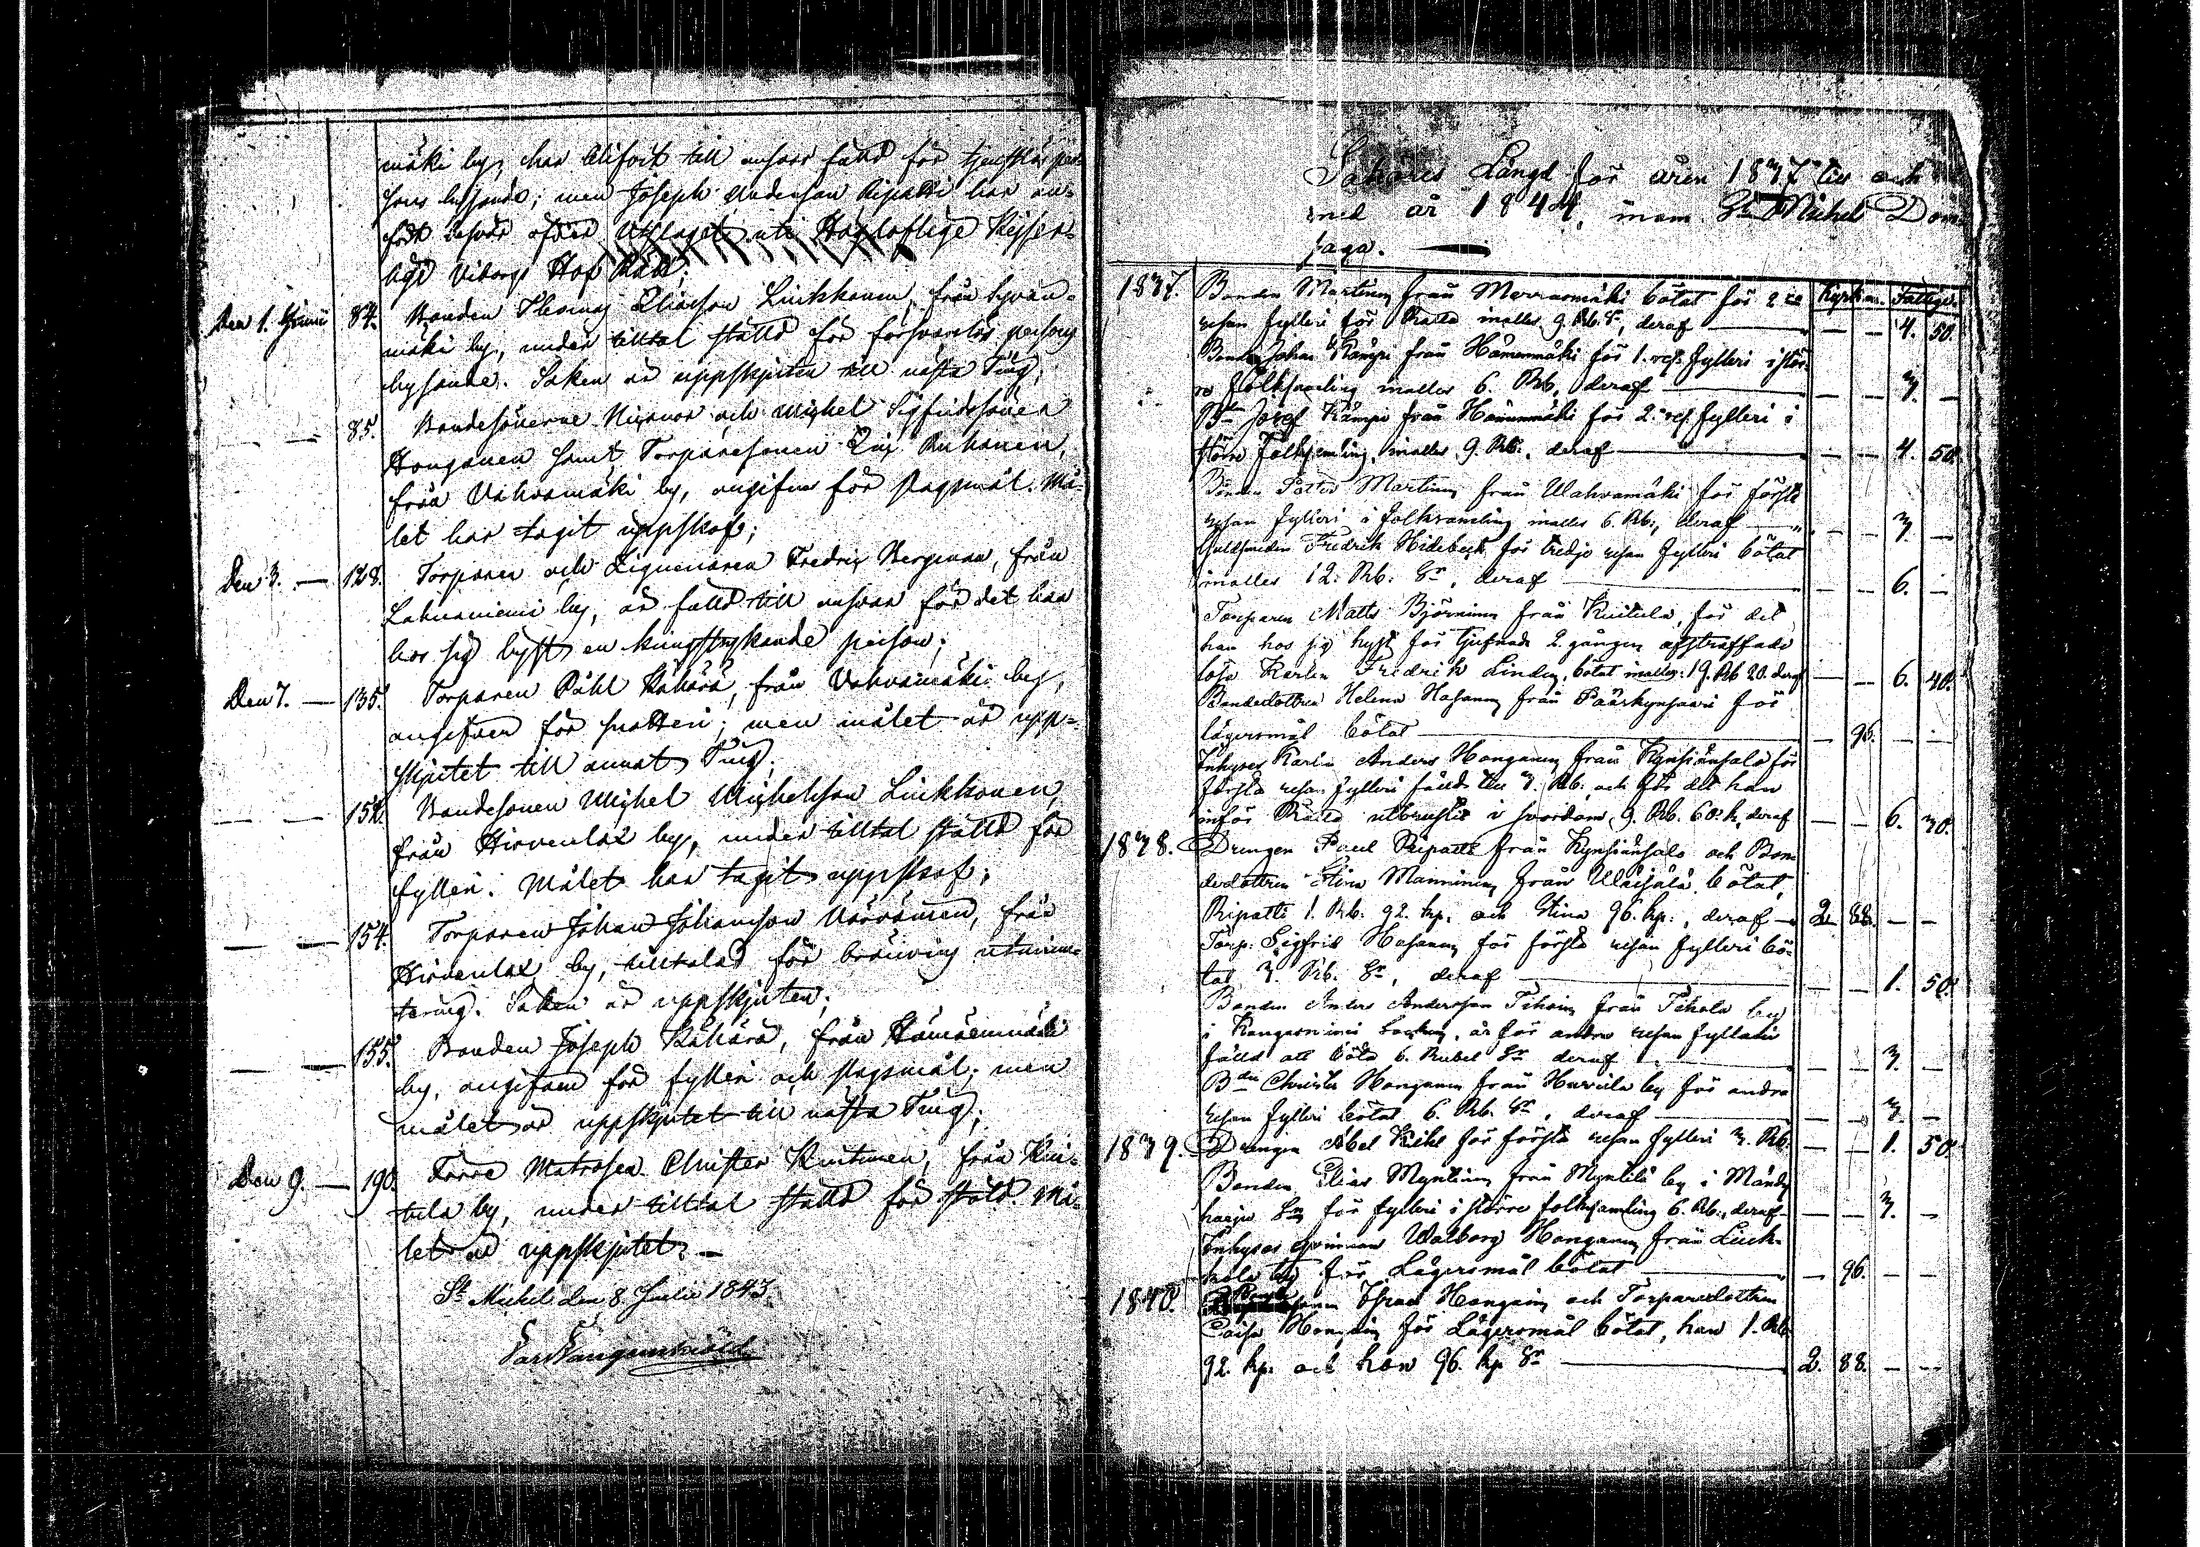 mäki by, har blifvit till ansvar fälld för tjenstlös per-
sons hysande; men Joseph Andersson Ripatti har an-
fört besvär öfver Utslaget uti Högloflige Kejser-
lige Viborgs Hof Rätt;
Den 1. 84. Bonden Thomas Eliasson Liukkonen, från
mäki by, under tilltal ställd för försvarslös persons
hysande. Saken är uppskjuten till nästa Ting;
— — 85. Bondesönerne Nicanor och Michel Sigfridssöner
Honganen samt Torparesonen Ruhanen,
från Vahvamäki by, angifne för slagsmål. Må-
let har tagit uppskof;
Den 3. — 128. Torparen och Lignenären Fredric Bergman, från
Lahnaniemi by, är fälld till ansvar för det han
hos sig hyst en kringstrykande person;
Den 7. — 135. Torparen Påhl Kähärä, från Vahvamäki by,
angifven för snatteri; men målet är upp-
skjutet till annat Ting;
— — 152. Bondesonen Michel Michelsson Liukkonen,
från Hirvenlax by, under tilltal ställd för
fylleri. Målet har tagit uppskof;
— — 154. Torparen Johan Johansson från
Hirvenlax by, tilltalad för bränvins utminu-
tering. Saken är uppskjuten;
— — 155. Bonden Joseph Kähärä, från Hämäenmäki
by, angifven för fylleri och slagsmål; men
målet är uppskjutet till nästa Ting;
Den 9. — 190. Förre Matrosen Christer Kuitunen, från Kui-
tula by, under tilltal ställd för stöld. Må-
let är uppskjutet. —
St Michel den 8 Julii 1843.
Saköres Längd för åren 1837 till och
med år 1844, inom St Michels Dom-
saga.
1837. Bonden Martinen från Marrasmäki bötat för 2dra Kyrkan. Fattige.
resan fylleri för Rätta innalles 9. Rb. Sr, deraf — — — 4. 50.
Bonden Johan Kämpi från Hämenmäki för 1. res. fylleri i stör-
re folksamling innalles 6. Rb. deraf — — — 3. —
Bdn Josef Kämpi från Hämenmäki för 2. res. fylleri i
större folksamling, innalles 9. Rb. deraf — — — 4. 50.
Bonden Petter Martinen från Wahvamäki för första
resan fylleri i folksamling innalles 6. Rb., deraf — — — 3. —
Guldsmeden Fredrik Hidebeck för tredje resan fylleri bötat
innalles 12. Rb. Sr, deraf — — — 6. —
Torparen Matts Björninen från Kuitula, för det
han hos sig hyst för tjufnad 2 gången afstraffade
lösa Karlen Fredrik Linden, bötat innalles 19. Rb 20. deraf — — 6. 40.
Bondedottren Helena Hasanen från Pääskynsaari för
lägersmål bötat — — 96. — —
Inhyses Karlen Anders Honganen från Kynsiänsalo för
första resan fylleri fälld till 3. Rb. och för det han
inför Rätta utbrustit i svordom, 9. Rb. 60. k., deraf — — 6. 30.
1838. Drengen Paul Ripatti från Kynsiänsalo och Bon-
dedottren Stina Manninen från Wäisälä, bötat,
Ripatti 1. Rb. 92. kp. och Stina 96. kp., deraf — 2. 88. — —
Torp. Sigfrid Hasanen för första resan fylleri bö-
tat 3. Rb. Sr, deraf — — — 1. 50.
Bonden Anders Andersson Tihoin från Tihola by
i Kangasniemi Socken, är för andra resan fylleri
fälld att böta 6. Rubel Sr deraf — — — 3. —
Bdn Christer Honganen från Hurula by för andra
resan fylleri bötat 6. Rb. Sr, deraf — — — 3. —
1839. Drengen Abel Kihl för första resan fylleri 3. Rb. — — 1. 50.
Bonden Elias Myntinen från Myntilä by i Mändy-
harju Sn för fylleri i större folksamling 6. Rb., deraf — — — 3. —
Inhyses qvinnan Walborg Honganen från Liuk-
kola by för Lägersmål bötat — — 96. — —
1840. Esaias Honganen och Torparedottren
Caisa Honganen för Lägersmål bötat, han 1. Rb.
92. kp. och hon 96. kp Sr — 2. 88. — —